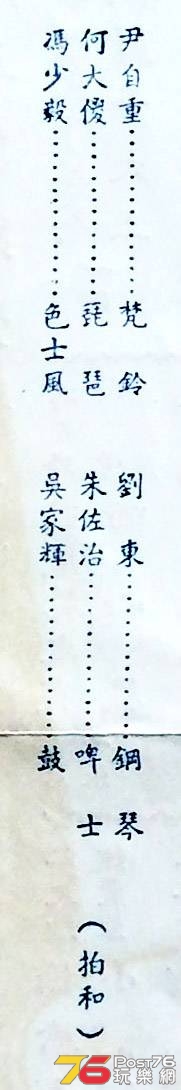 尹自重………………梵鈴　劉東………………鋼琴
何大傻………………琵琶　朱佐治………………啤士（拍和）
馮少毅………………色士風　吳家輝………………鼓
76 Post76 玩樂網